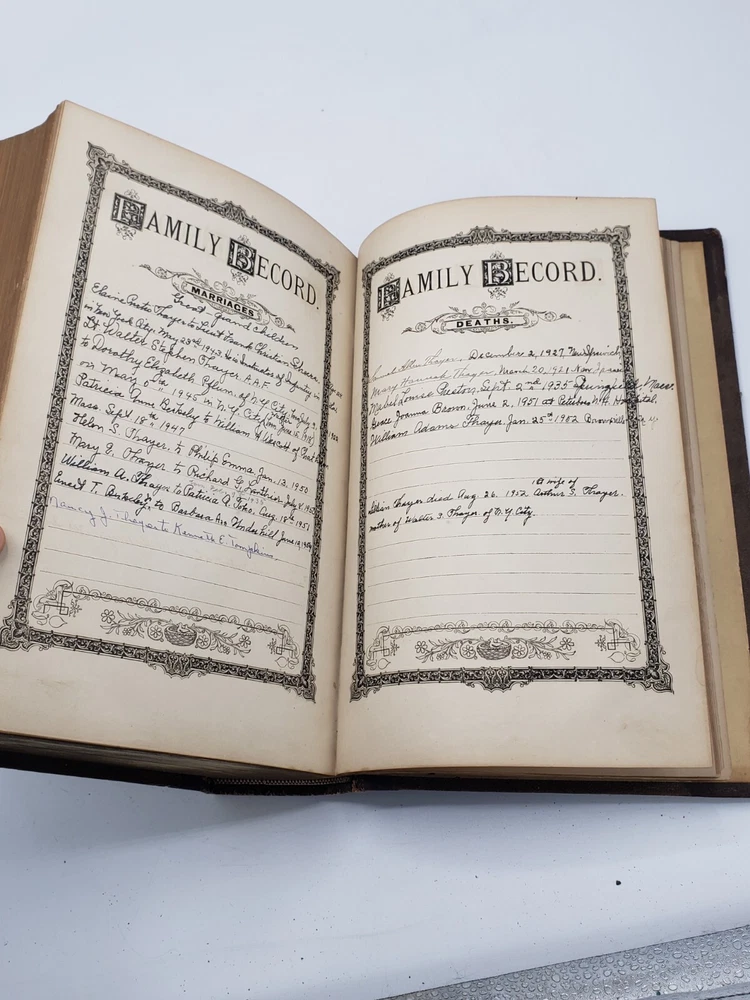 FAMILY RECORD.
MARRIAGES
Great grand children
Elaine Thayer to Lieut. Frank Christian
in New York City, May 23rd 1943. He is Instructor of Infantry in
Lt Walter Stephen Thayer A.A.F.
to Dorothy Elizabeth of N.Y. City
on May 1945 in N.Y. City
Patricia Anne Berkeley to William of
Mass. Sept. 18th 1947
Helen S. Thayer to Philip Emma Jan. 12, 1950
Mary E. Thayer to Richard G. July
William A. Thayer to Patricia A. Aug. 18th 1951
Ernest T. Berkeley to Barbara Ann Underhill June 12,
Nancy J. Thayer to Kenneth E. Tompkins
FAMILY RECORD.
DEATHS.
Allen Thayer. December 2, 1927 New Ipswich
Mary Hannah Thayer. March 20, 1921. New Ipswich
Mabel Louise Preston, Sept. 2nd 1935 Springfield, Mass.
Joanna Brown, June 2, 1951 at Peterboro N.H. Hospital.
William Adams Thayer. Jan. 25th 1952
1st wife of
Thayer died Aug. 26. 1952 Arthur S. Thayer.
mother of Walter S. Thayer of N.Y. City.